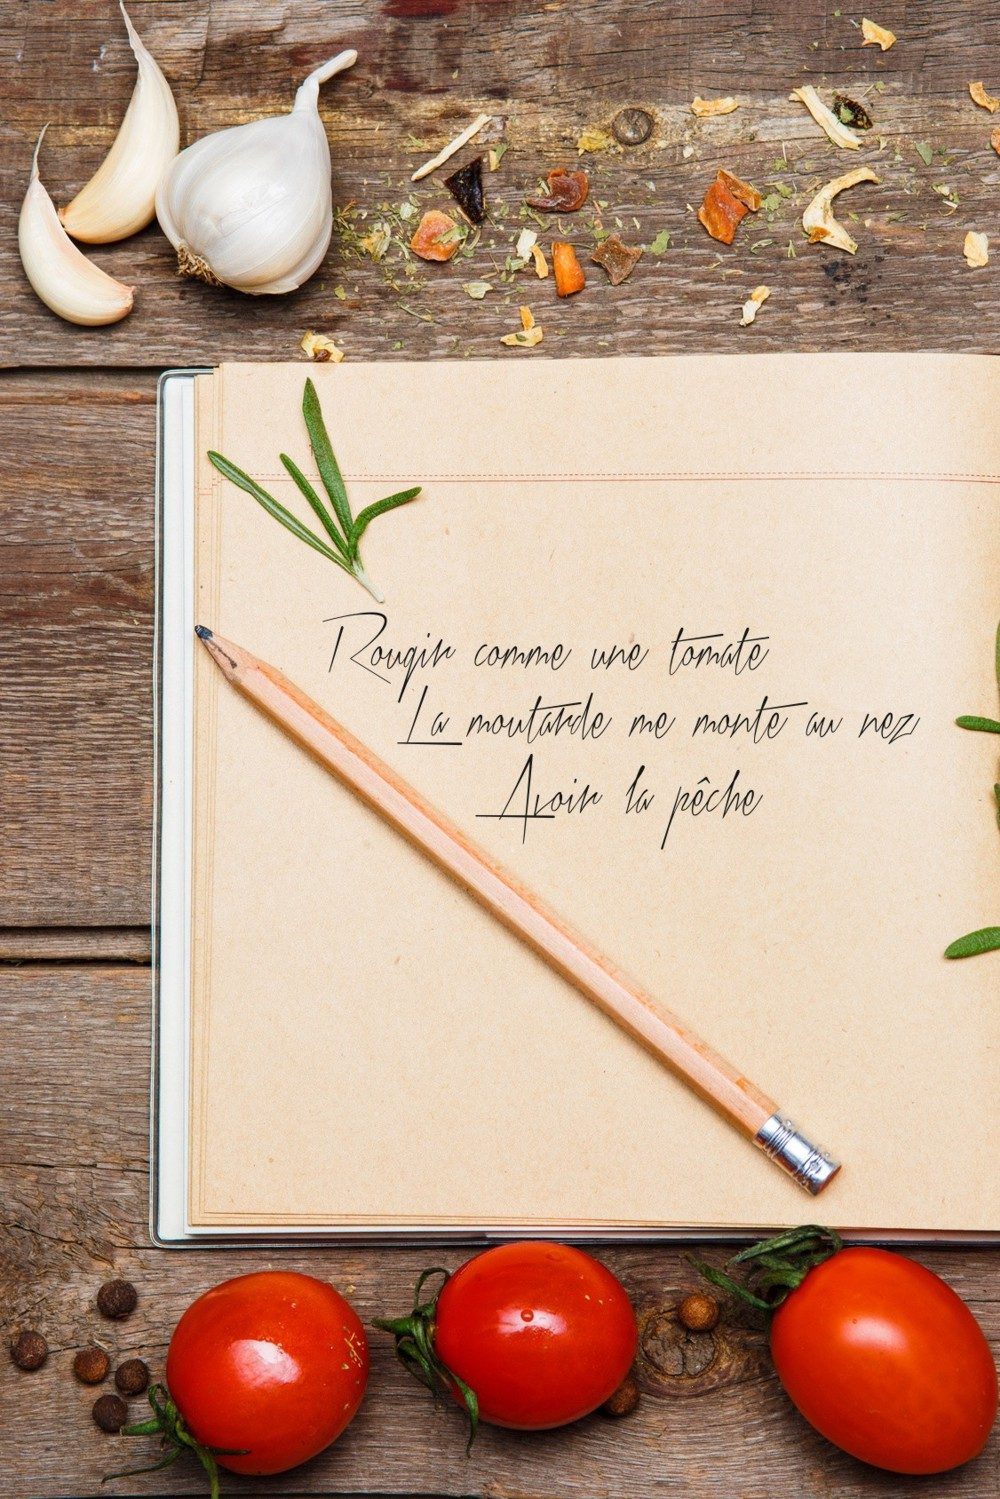 Rougir comme une tomate
La moutarde me monte au nez
Avoir la pêche